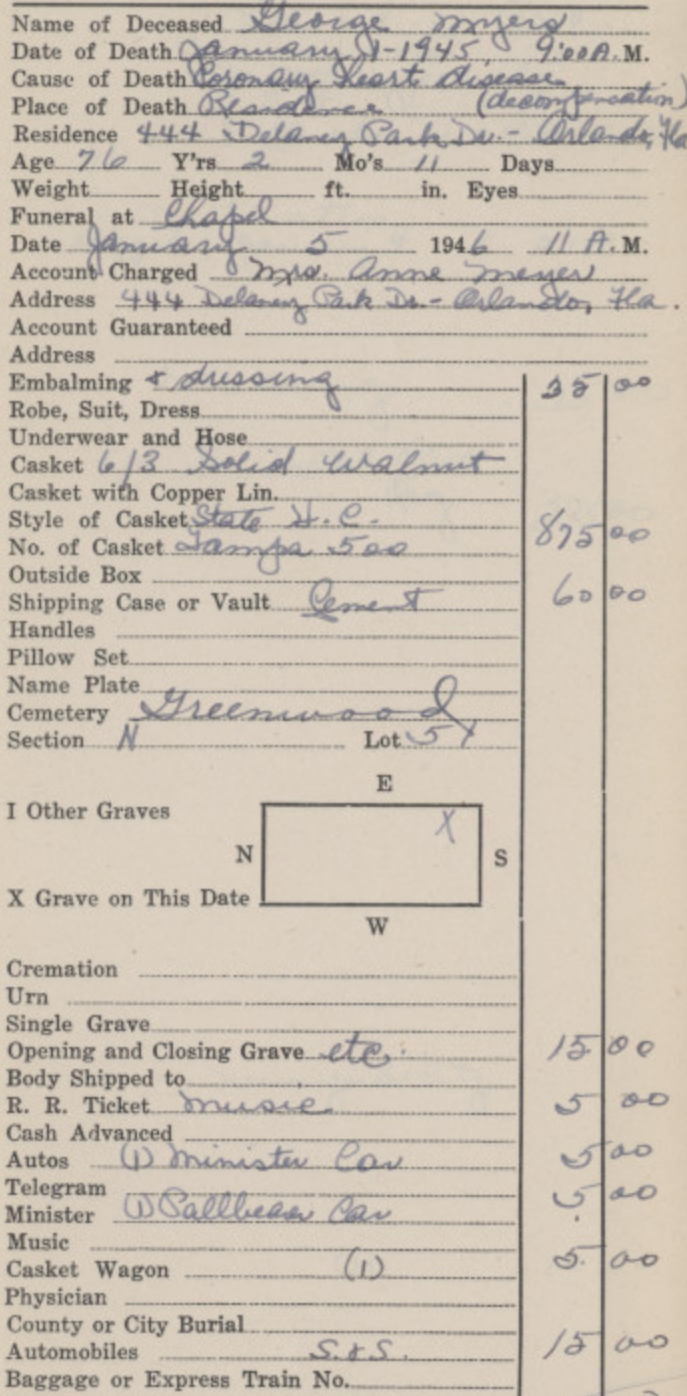 Name of Deceased George Myers
Date of Death January 1-1945, 9:00 A.M.
Cause of Death Coronary Heart disease
Place of Death Residence (decompensation)
Residence 444 Delaney Park Dr.- Orlando, Fla
Age 76 Y'rs 2 Mo's 11 Days
Weight Height ft. in. Eyes
Funeral at Chapel
Date January 5 1946 11 A.M.
Account Charged Mrs. Anne Meyer
Address 444 Delaney Park Dr.- Orlando, Fla.
Account Guaranteed
Address
Embalming + dressing 00
Robe, Suit, Dress
Underwear and Hose
Casket 6/3 Solid Walnut
Casket with Copper Lin.
Style of Casket State H.C.
No. of Casket Tampa 500 875 00
Outside Box
Shipping Case or Vault Cement 60 00
Handles
Pillow Set
Name Plate
Cemetery Greenwood
Section N Lot 5
E
I Other Graves X
N S
X Grave on This Date
W
Cremation
Urn
Single Grave
Opening and Closing Grave etc. 15 00
Body Shipped to
R. R. Ticket music 5 00
Cash Advanced
Autos (1) Minister Car 5 00
Telegram 5 00
Minister (1) Pallbearer Car
Music
Casket Wagon (1) 5.00
Physician
County or City Burial
Automobiles S.&S. 15 00
Baggage or Express Train No.